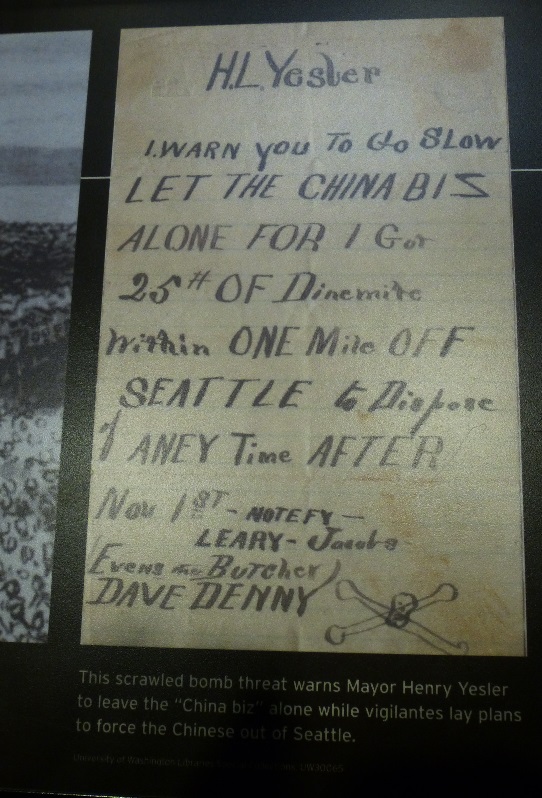 H.L. Yesler
I. WARN you To Go SLOW
LET THE CHINA BIZ
ALONE FOR I Got
25# OF Dinemite
Within ONE Mile OFF
SEATTLE to Dispose
of ANEY Time AFTER
Nov 1ST - NOTEFY -
LEARY - Jacobs
(Evens the Butcher)
DAVE DENNY
This scrawled bomb threat warns Mayor Henry Yesler
to leave the “China biz” alone while vigilantes lay plans
to force the Chinese out of Seattle.
University of Washington Libraries